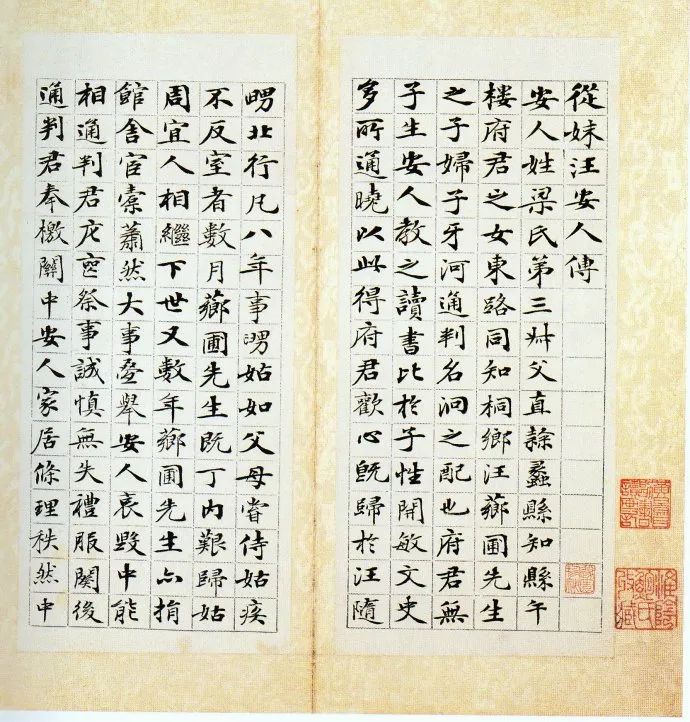 從妹汪安人傳
安人姓梁氏第三叔父直隸蠡縣知縣午
樓府君之女東路同知桐鄉汪薌圃先生
之子婦子牙河通判名泂之配也府君無
子生安人教之讀書比於子性開敏文史
多所通曉以此得府君歡心既歸於汪隨
舅北行凡八年事舅姑如父母嘗侍姑疾
不反室者數月薌圃先生既丁內艱歸姑
周宜人相繼下世又數年薌圃先生亦捐
館舍宦橐蕭然大事疊舉安人哀毀中能
相通判君庀喪祭事誠慎無失禮服闋後
通判君奉檄關中安人家居條理秩然中